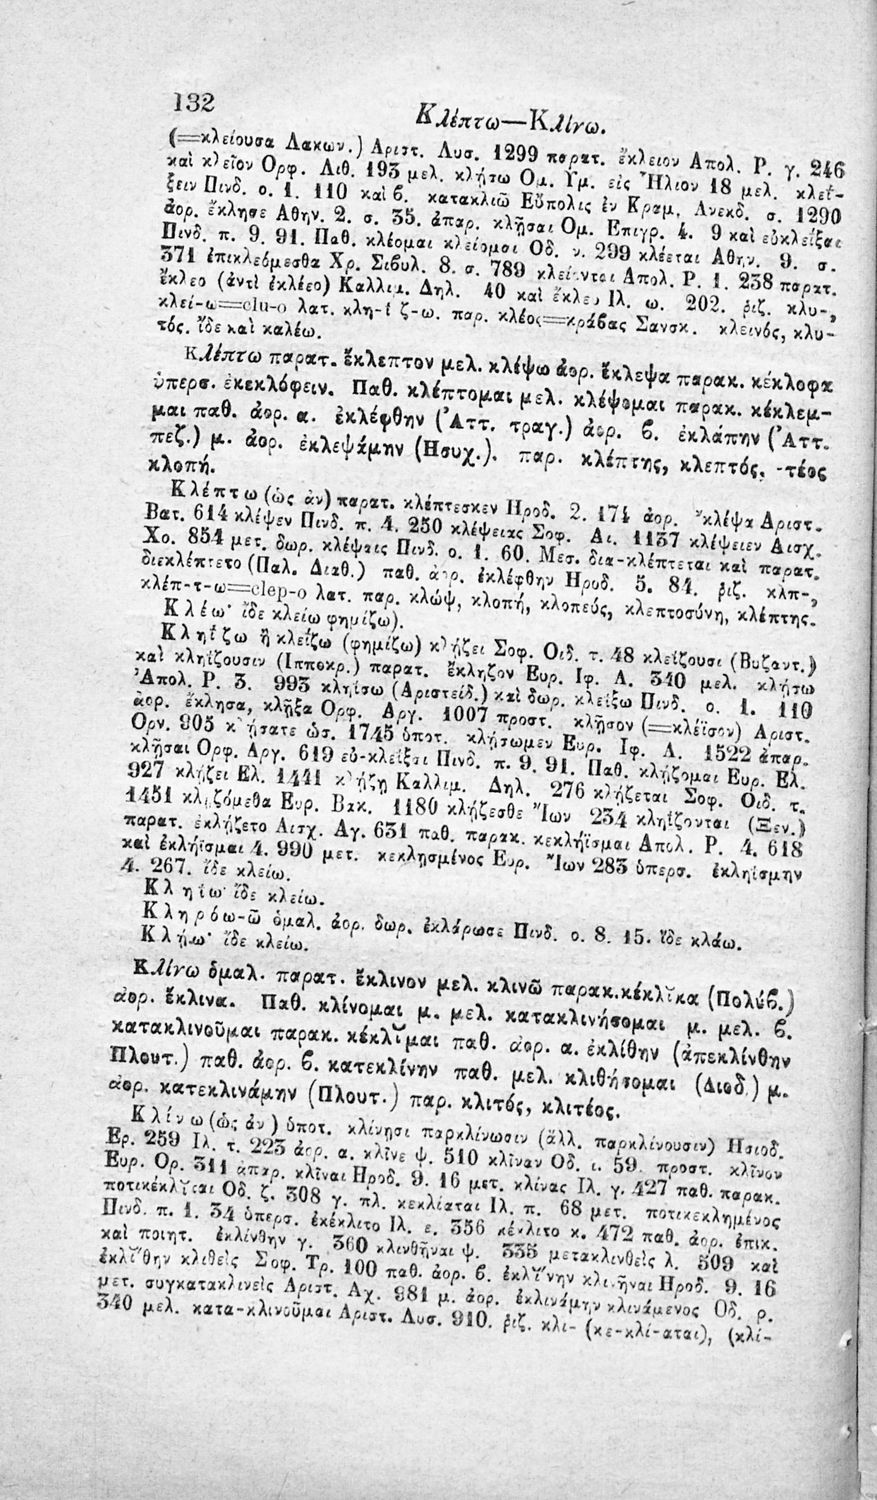 132
Κλέπτω—Κλίνω.
(=κλείουσα Λακων.) Αριστ. Λυσ. 1299 παρατ. ἔκλειον Απολ. Ρ. γ. 246
καὶ κλεῖον Ορφ. Λιθ. 193 μελ. κλήσω Ομ. Ὑμ. εἰς Ἥλιον 18 μελ. κλεί-
ξειν Πινδ. ο. 1. 110 καὶ β. κατακλιῶ Εὔπολις ἐν Κραμ. Ανεκδ. σ. 1290
ἀορ. ἔκλησε Αθην. 2. σ. 35. ἀπαρ. κλῆσαι Ομ. Επιγρ. 4. 9 καὶ εὐκλεΐξαι
Πινδ. π. 9. 91. Παθ. κλέομαι κλείομαι Οδ. ν. 299 κλέεται Αθην. 9. σ.
371 ἐπικλεόμεσθα Χρ. Σιβυλ. 8. σ. 789 κλείονται Απολ. Ρ. 1. 238 παρατ.
ἔκλεο (ἀντὶ ἐκλέεο) Καλλιμ. Δηλ. 40 καὶ ἔκλευ Ιλ. ω. 202. ῥιζ. κλυ-,
κλεί-ω=clu-o λατ. κλη-ί ζ-ω. παρ. κλέος=κράβας Σανσκ. κλεινός, κλυ-
τός. ἴδε καὶ καλέω.
Κλέπτω παρατ. ἔκλεπτον μελ. κλέψω ἀορ. ἔκλεψα παρακ. κέκλοφα
ὑπερσ. ἐκεκλόφειν. Παθ. κλέπτομαι μελ. κλέψομαι παρακ. κέκλεμ-
μαι παθ. ἀορ. α. ἐκλέφθην (Ἀττ. τραγ.) ἀορ. β. ἐκλάπην (Ἀττ.
πεζ.) μ. ἀορ. ἐκλεψάμην (Ησυχ.). παρ. κλέπτης, κλεπτός, -τέος
κλοπή.
Κλέπτω (ὡς ἀν) παρατ. κλέπτεσκεν Ηροδ. 2. 174 ἀορ. ἔκλεψα Αριστ.
Βατ. 614 κλέψεν Πινδ. π. 4. 250 κλέψειας Σοφ. Αι. 1137 κλέψειεν Αισχ.
Χο. 854 μετ. δωρ. κλέψαις Πινδ. ο. 1. 60. Μεσ. δια-κλέπτεται καὶ παρατ.
διεκλέπτετο (Παλ. Διαθ.) παθ. ἀορ. ἐκλέφθην Ηροδ. 5. 84. ῥιζ. κλπ-,
κλέπ-τ-ω=clep-o λατ. παρ. κλώψ, κλοπή, κλοπεύς, κλεπτοσύνη, κλέπτης.
Κλέω· ἴδε κλείω φημίζω).
Κληΐζω ἢ κλεΐζω (φημίζω) κλήζει Σοφ. Οιδ. τ. 48 κλεΐζουσι (Βυζαντ.)
καὶ κληΐζουσιν (Ιπποκρ.) παρατ. ἔκληζον Ευρ. Ιφ. Α. 340 μελ. κλήσω
Ἀπολ. Ρ. 3. 993 κληΐσω (Αριστείδ.) καὶ δωρ. κλεΐξω Πινδ. ο. 1. 110
ἀορ. ἔκλησα, κλῇξα Ορφ. Αργ. 1007 προστ. κλῇσον (=κλέϊσον) Αριστ.
Ορν. 905 κλήσατε ὡσ. 1745 ὑποτ. κλήσωμεν Ευρ. Ιφ. Α. 1522 ἀπαρ.
κλῇσαι Ορφ. Αργ. 619 εὐ-κλεΐξαι Πινδ. π. 9. 91. Παθ. κλήζομαι Ευρ. Ελ.
927 κλήζει Ελ. 1441 κλήζῃ Καλλιμ. Δηλ. 276 κλήζεται Σοφ. Οιδ. τ.
1451 κληζόμεθα Ευρ. Βακ. 1180 κλήζεσθε Ἴων 234 κληΐζονται (Ξεν.)
παρατ. ἐκλήζετο Αισχ. Αγ. 631 παθ. παρακ. κεκλήϊσμαι Απολ. Ρ. 4. 618
καὶ ἐκλήϊσμαι 4. 990 μετ. κεκλησμένος Ευρ. Ἴων 283 ὑπερσ. ἐκληΐσμην
4. 267. ἴδε κλείω.
Κληΐω· ἴδε κλείω.
Κληρόω-ῶ ὁμαλ. ἀορ. δωρ. ἐκλάρωσε Πινδ. ο. 8. 15. ἴδε κλάω.
Κλήω· ἴδε κλείω.
Κλίνω ὁμαλ. παρατ. ἔκλινον μελ. κλινῶ παρακ. κέκλῐκα (Πολύβ.)
ἀορ. ἔκλινα. Παθ. κλίνομαι μ. μελ. κατακλινήσομαι μ. μελ. β.
κατακλινοῦμαι παρακ. κέκλῐμαι παθ. ἀορ. α. ἐκλίθην (ἀπεκλίνθην
Πλουτ.) παθ. ἀορ. β. κατεκλίνην παθ. μελ. κλιθήσομαι (Διοδ.) μ.
ἀορ. κατεκλινάμην (Πλουτ.) παρ. κλιτός, κλιτέος.
Κλίνω (ὡς ἀν) ὑποτ. κλίνῃσι παρκλίνωσιν (ἄλλ. παρκλίνουσιν) Ησιοδ.
Ερ. 259 Ιλ. τ. 223 ἀορ. α. κλῖνε ψ. 510 κλῖναν Οδ. ι. 59. προστ. κλῖνον
Ευρ. Ορ. 311 ἀπαρ. κλῖναι Ηροδ. 9. 16 μετ. κλίνας Ιλ. γ. 427 παθ. παρακ.
ποτικέκλῐται Οδ. ζ. 308 γ. πλ. κεκλίαται Ιλ. π. 68 μετ. ποτικεκλημένος
Πινδ. π. 1. 34 ὑπερσ. ἐκέκλιτο Ιλ. ε. 356 κέκλιτο κ. 472 παθ. ἀορ. ἐπικ.
καὶ ποιητ. ἐκλίνθην γ. 360 κλινθῆναι ψ. 335 μετακλινθεὶς λ. 509 καὶ
ἐκλῐ́θην κλιθεὶς Σοφ. Τρ. 100 παθ. ἀορ. β. ἐκλῐ́νην κλινῆναι Ηροδ. 9. 16
μετ. συγκατακλινεὶς Αριστ. Αχ. 981 μ. ἀορ. ἐκλινάμην κλινάμενος Οδ. ρ.
340 μελ. κατα-κλινοῦμαι Αριστ. Λυσ. 910. ῥιζ. κλι- (κε-κλί-αται), (κλί-